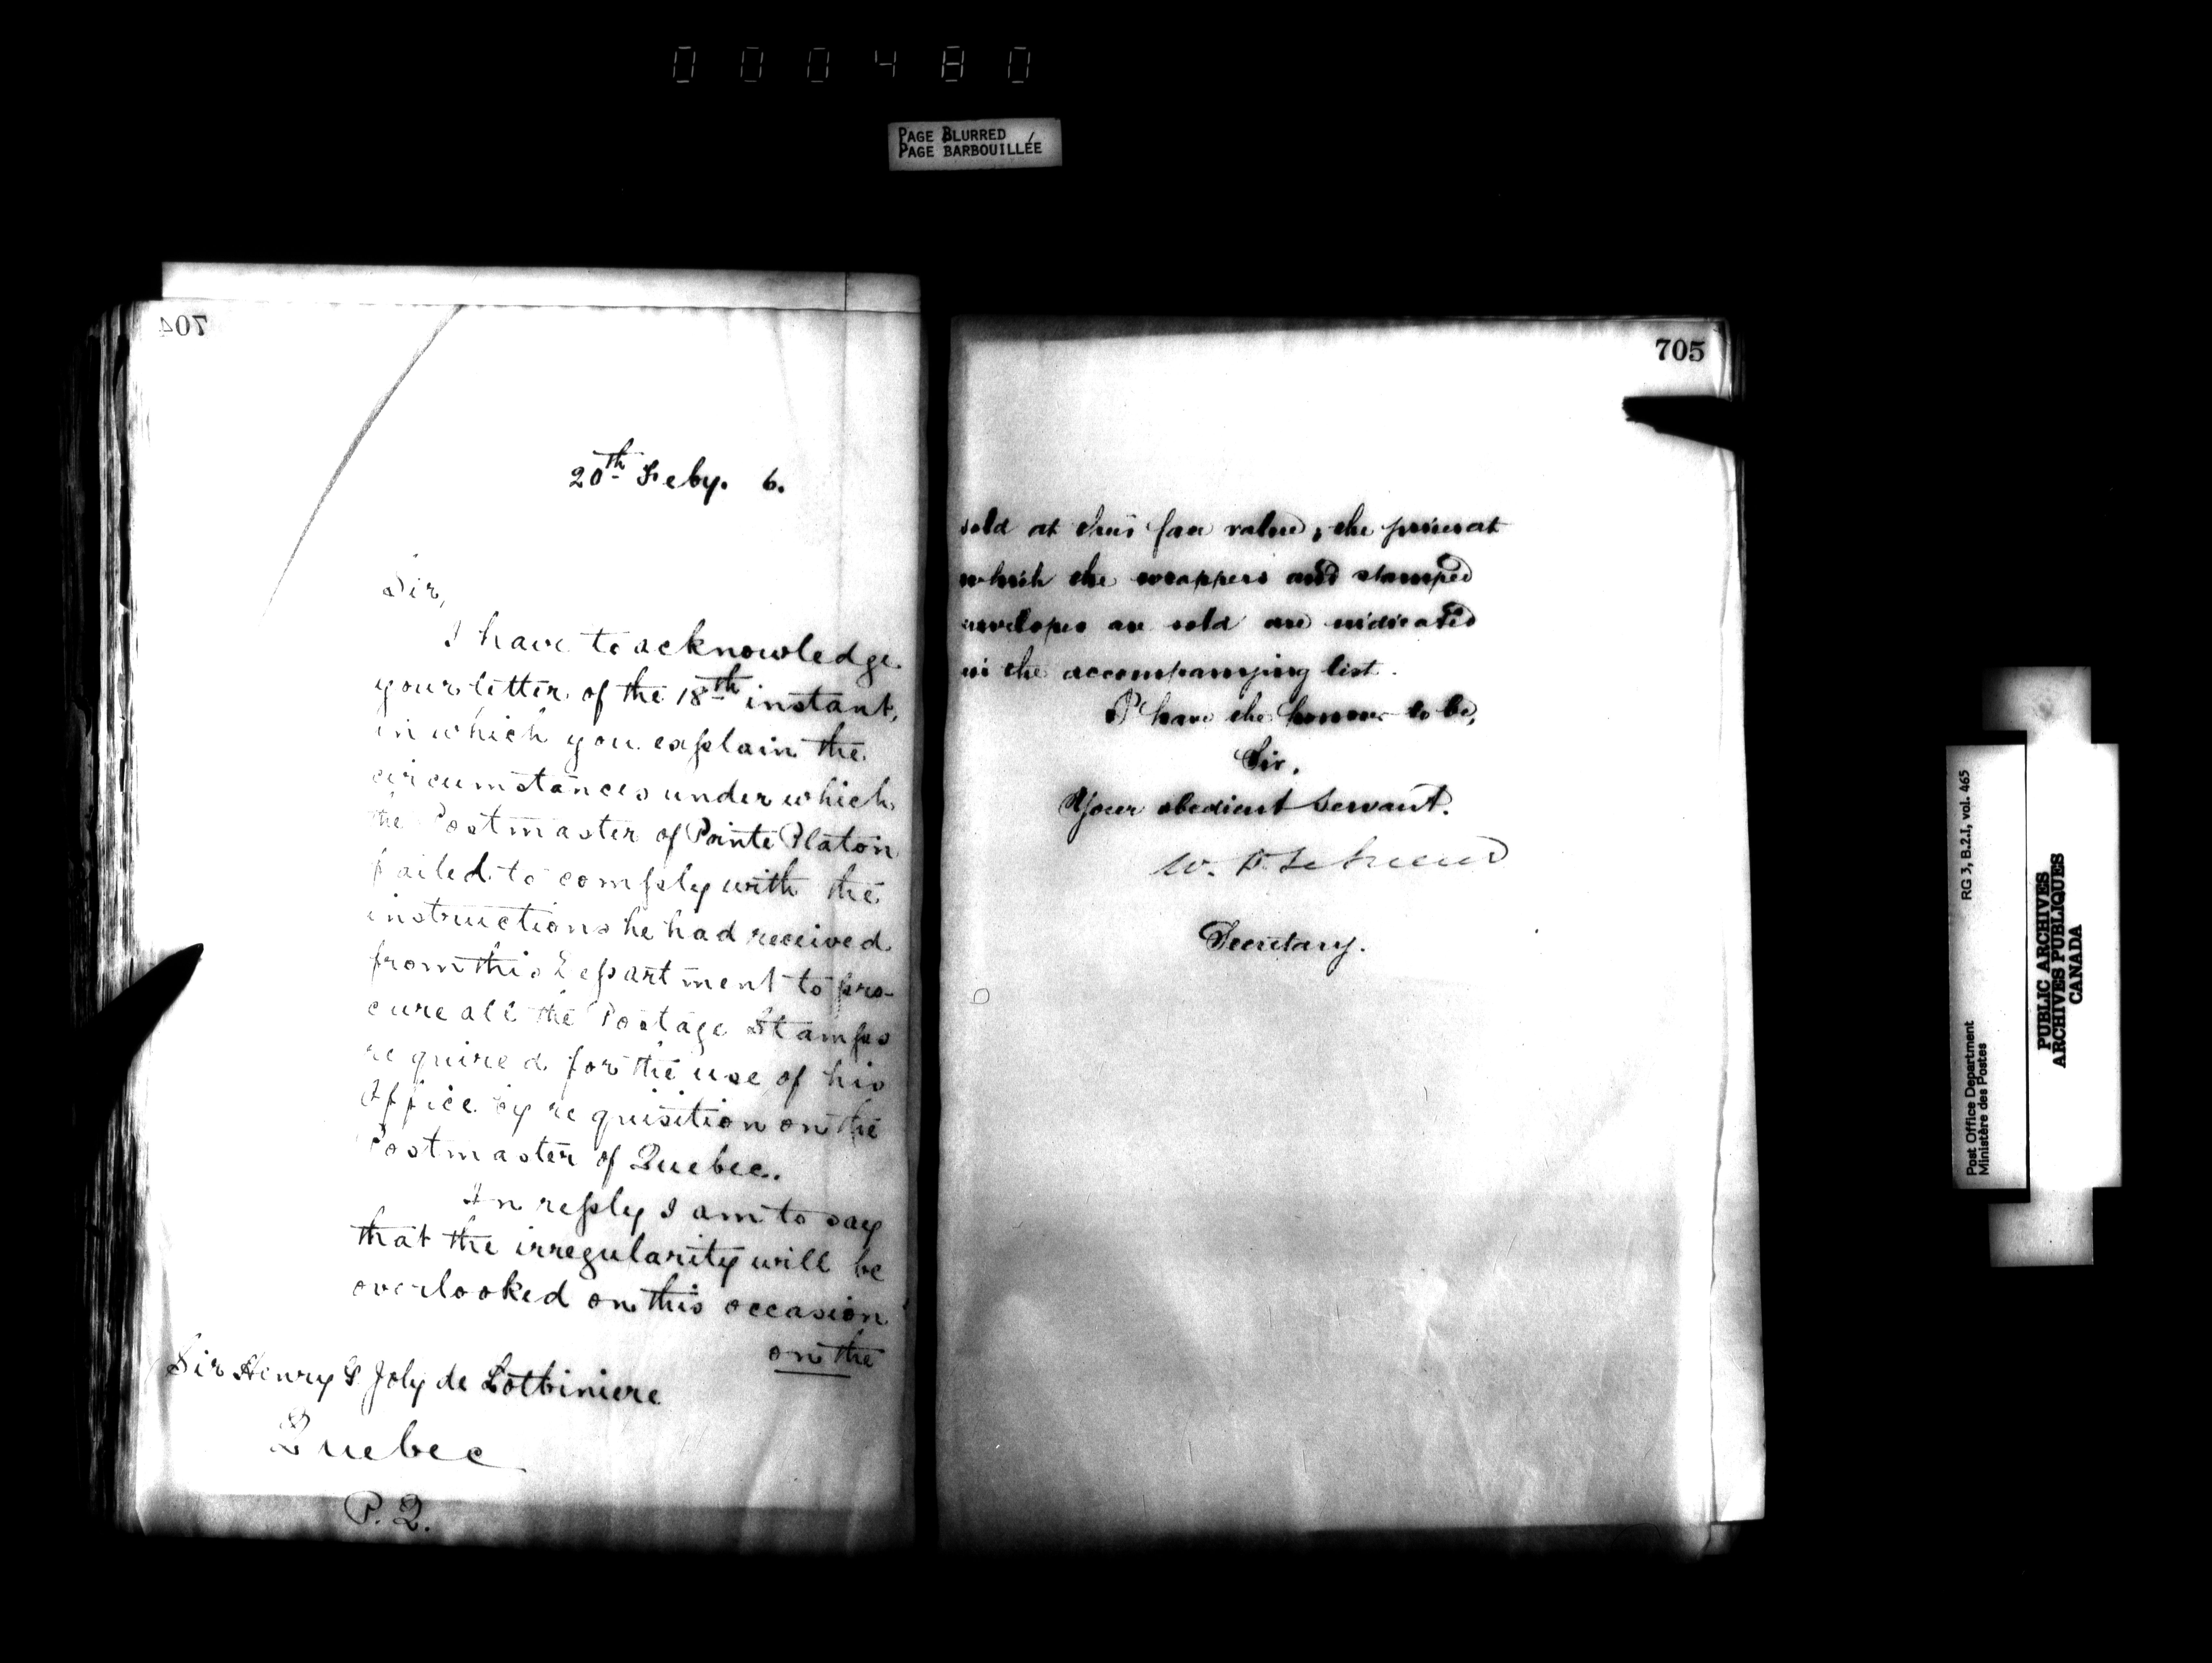 000480
PAGE BLURRED
PAGE BARBOUILLÉE
704
20th Feby. 6.
Sir,
I have to acknowledge
your letter of the 18th instant,
in which you explain the
circumstances under which
the Postmaster of Pointe Platon
failed to comply with the
instructions he had received
from this Department to pro-
cure all the Postage Stamps
required for the use of his
Office by requisition on the
Postmaster of Quebec.
In reply I am to say
that the irregularity will be
overlooked on this occasion
on the
Sir Henry G. Joly de Lotbiniere
Quebec
P. Q.
705
sold at their face value, the prices at
which the wrappers and stamped
envelopes are sold are indicated
in the accompanying list.
I have the honour to be,
Sir,
Your obedient Servant.
W. D. LeSueur
Secretary.
Post Office Department
Ministère des Postes
RG 3, B.2.I, vol. 465
PUBLIC ARCHIVES
ARCHIVES PUBLIQUES
CANADA